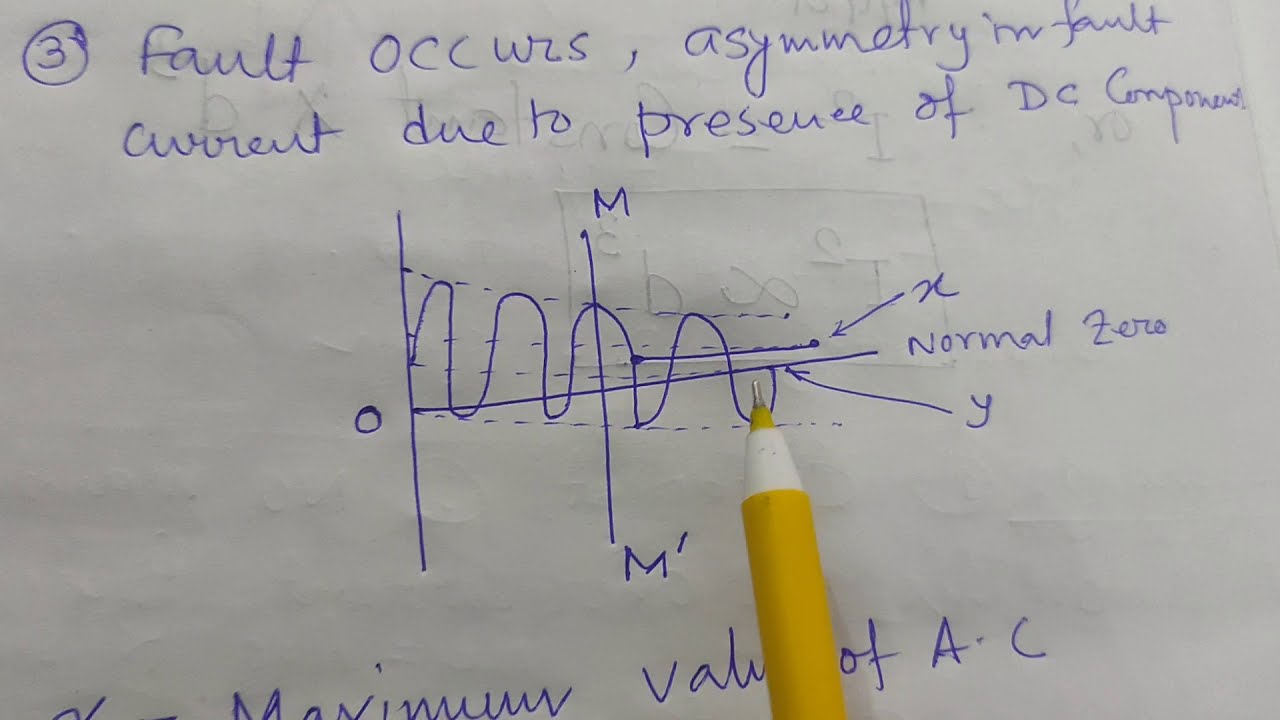 ③ Fault occurs, asymmetry in fault
current due to presence of DC Component
M
x
Normal Zero
O
y
M'
x - Maximum value of A.C